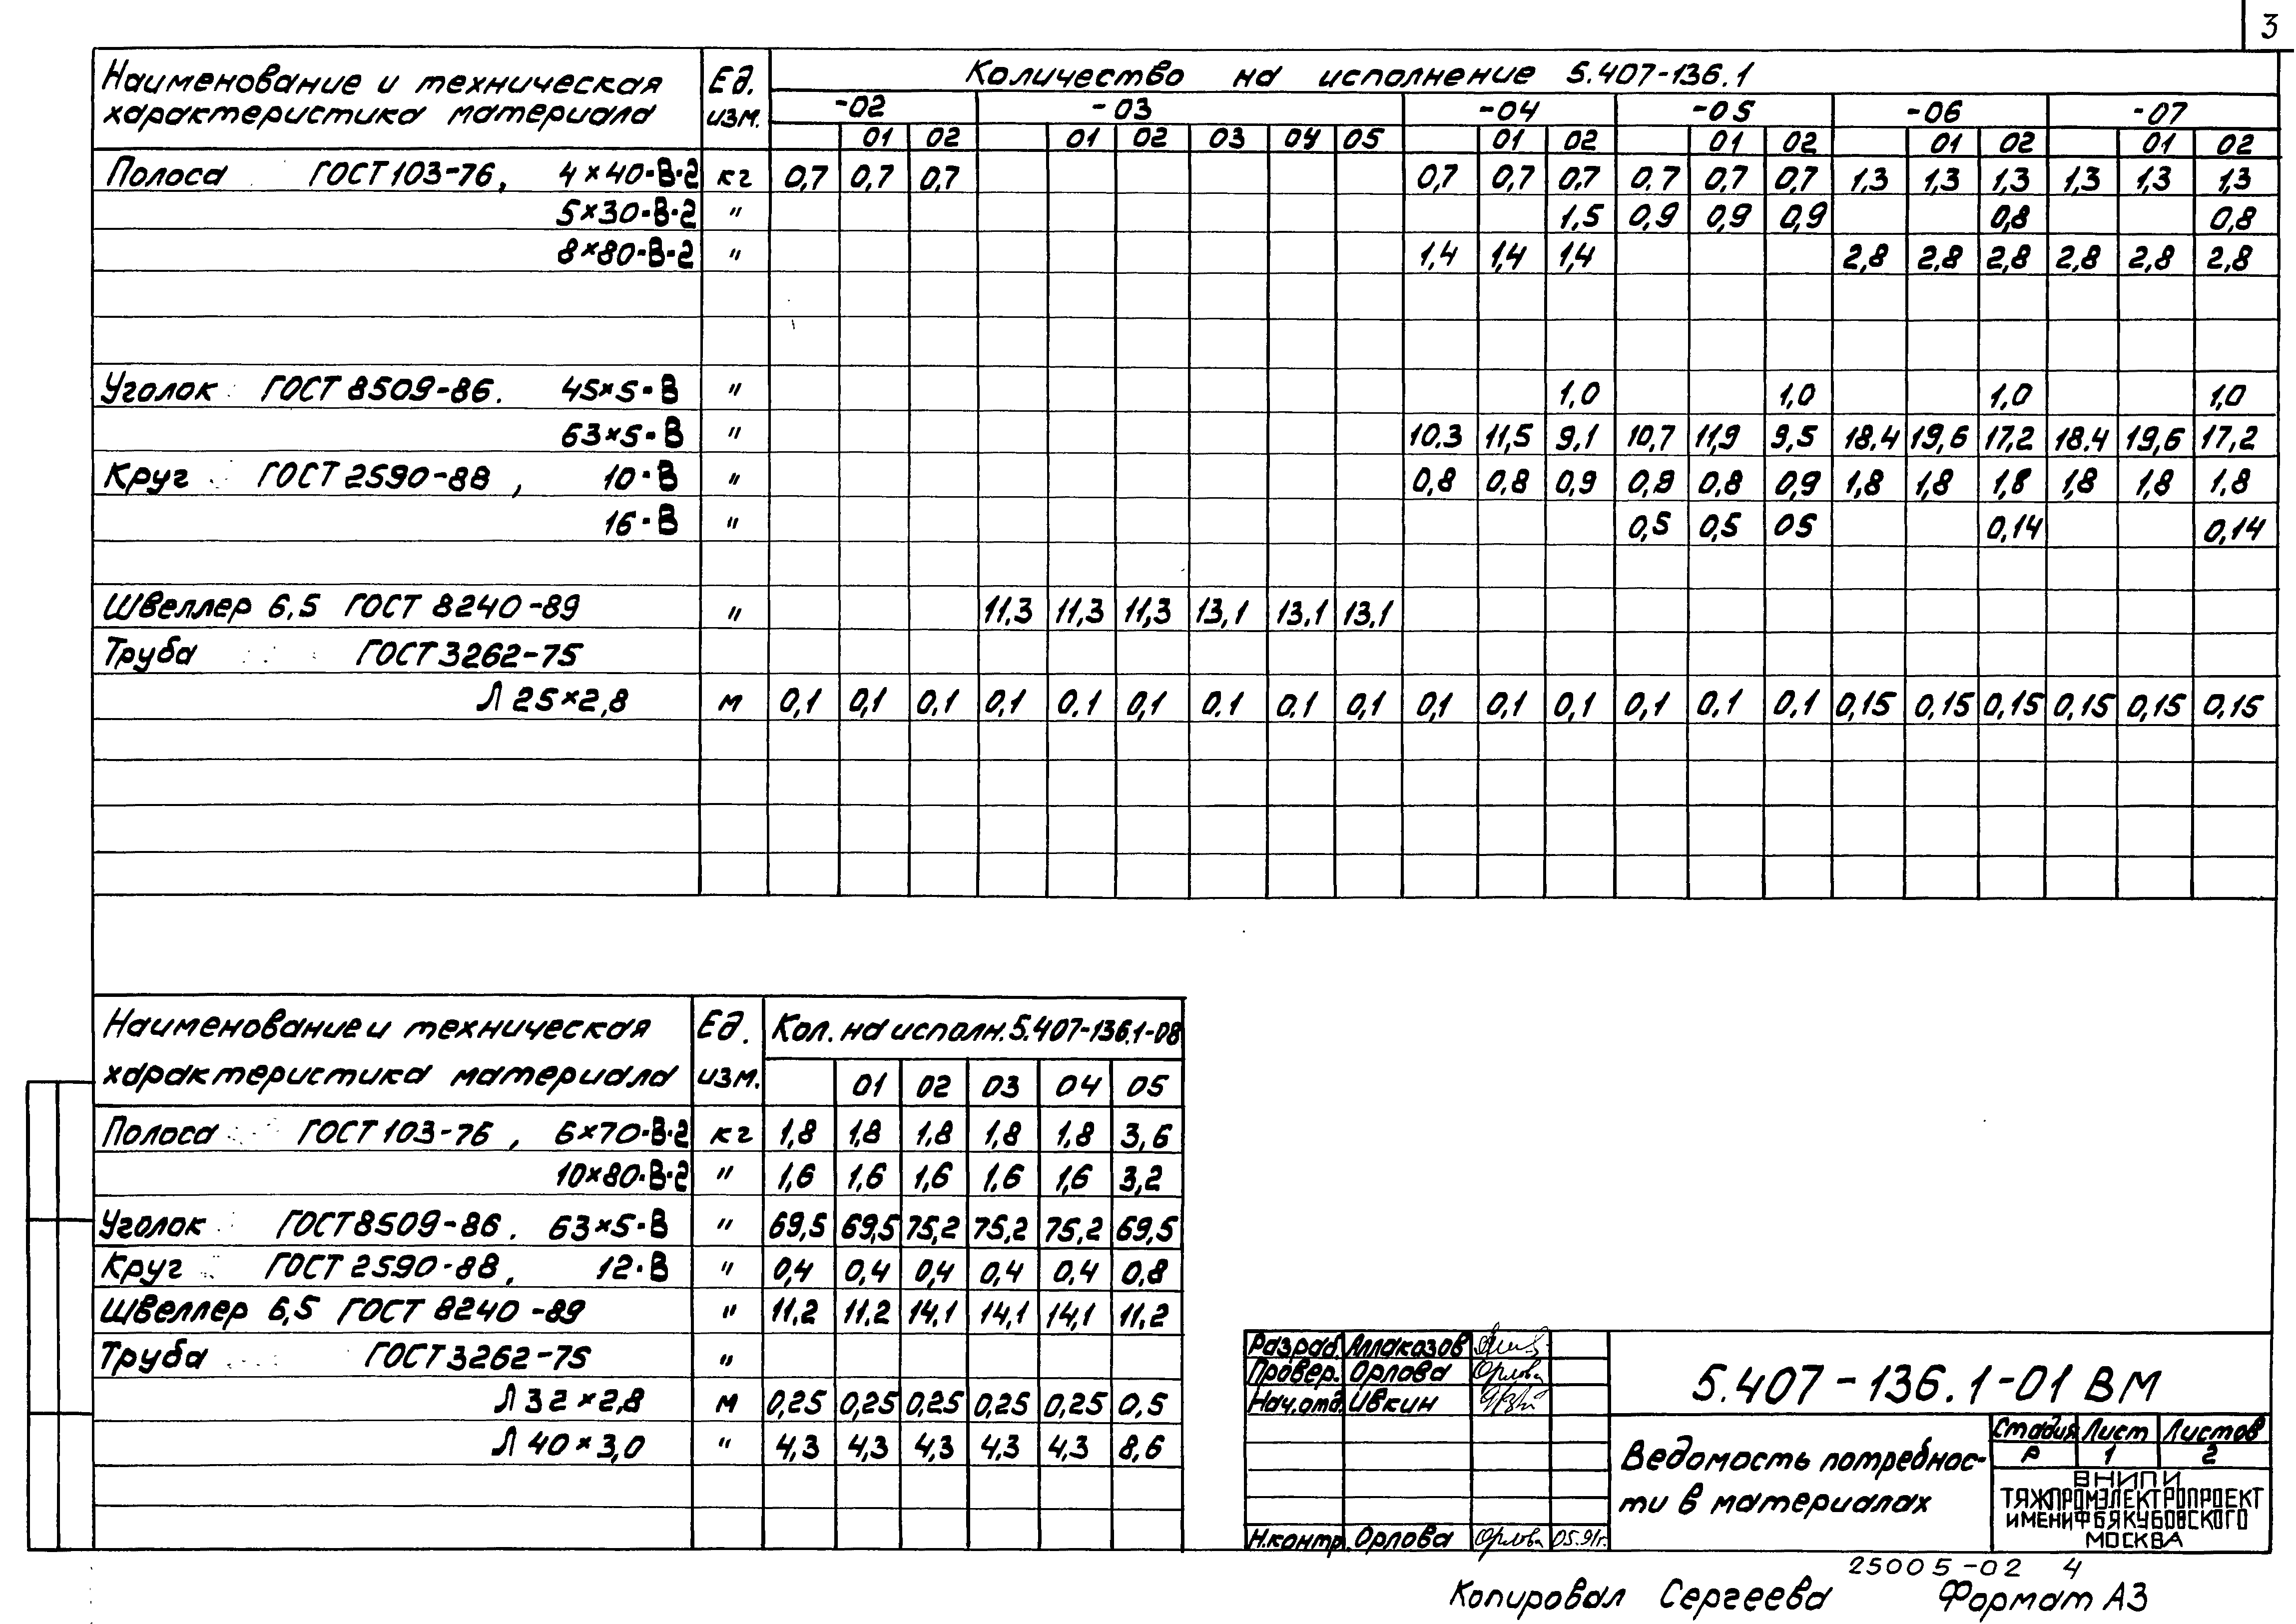 3
Наименование и техническая характеристика материала Ед. изм. Количество на исполнение 5.407-136.1
-02 -03 -04 -05 -06 -07
01 02 01 02 03 04 05 01 02 01 02 01 02 01 02
Полоса ГОСТ 103-76, 4×40-В-2 кг 0,7 0,7 0,7 0,7 0,7 0,7 0,7 0,7 0,7 1,3 1,3 1,3 1,3 1,3 1,3
5×30-В-2 " 1,5 0,9 0,9 0,9 0,8 0,8
8×80-В-2 " 1,4 1,4 1,4 2,8 2,8 2,8 2,8 2,8 2,8
Уголок ГОСТ 8509-86. 45×5-В " 1,0 1,0 1,0 1,0
63×5-В " 10.3 11,5 9,1 10,7 11,9 9,5 18.4 19,6 17,2 18.4 19,6 17,2
Круг ГОСТ 2590-88, 10-В " 0,8 0,8 0,9 0,9 0,8 0,9 1,8 1,8 1,8 1,8 1,8 1,8
16-В " 0,5 0,5 05 0,14 0,14
Швеллер 6,5 ГОСТ 8240-89 " 11,3 11,3 11,3 13,1 13.1 13,1
Труба ГОСТ 3262-75
Л 25×2,8 м 0,1 0,1 0,1 0,1 0,1 0,1 0,1 0,1 0,1 0,1 0,1 0,1 0,1 0,1 0,1 0,15 0,15 0,15 0,15 0,15 0,15
Наименование и техническая Ед. Кол. на исполн. 5.407-136.1-08
характеристика материала изм. 01 02 03 04 05
Полоса ГОСТ 103-76, 6×70-В-2 кг 1,8 1,8 1,8 1,8 1,8 3,6
10×80-В-2 " 1,6 1,6 1,6 1,6 1,6 3,2
Уголок ГОСТ 8509-86. 63×5-В " 69,5 69,5 75,2 75,2 75,2 69,5
Круг ГОСТ 2590-88, 12-В " 0,4 0,4 0,4 0,4 0,4 0,8
Швеллер 6,5 ГОСТ 8240-89 " 11,2 11,2 14,1 14,1 14,1 11,2
Труба ГОСТ 3262-75 "
Л 32×2,8 м 0,25 0,25 0,25 0,25 0,25 0,5
Л 40×3,0 " 4,3 4,3 4,3 4,3 4,3 8,6
Разраб. Аллакозов
Провер. Орлова Орлова
Нач.отд. Ивкин
Н.контр. Орлова Орлова 05.91г.
5.407-136.1-01 ВМ
Ведомость потребнос-
ти в материалах
Стадия Лист Листов
Р 1 2
ВНИПИ
ТЯЖПРОМЭЛЕКТРОПРОЕКТ
ИМЕНИ Ф Б ЯКУБОВСКОГО
МОСКВА
25005-02 4
Копировал Сергеева Формат А3